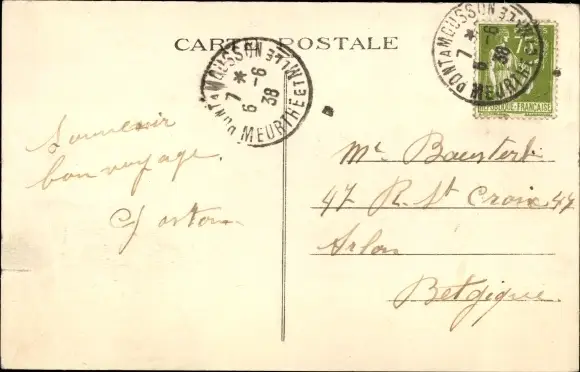 CARTE POSTALE
PONT A MOUSSON MEURTHE ET MLLE
* 7
6 -6
38
PONT A MOUSSON MEURTHE ET MLLE
* 7
6 -6
38
75
RÉPUBLIQUE-FRANÇAISE
Souvenir
bon voyage.
Gaston
Mr Baustert
47 R. St Croix 47
Arlon
Belgique.